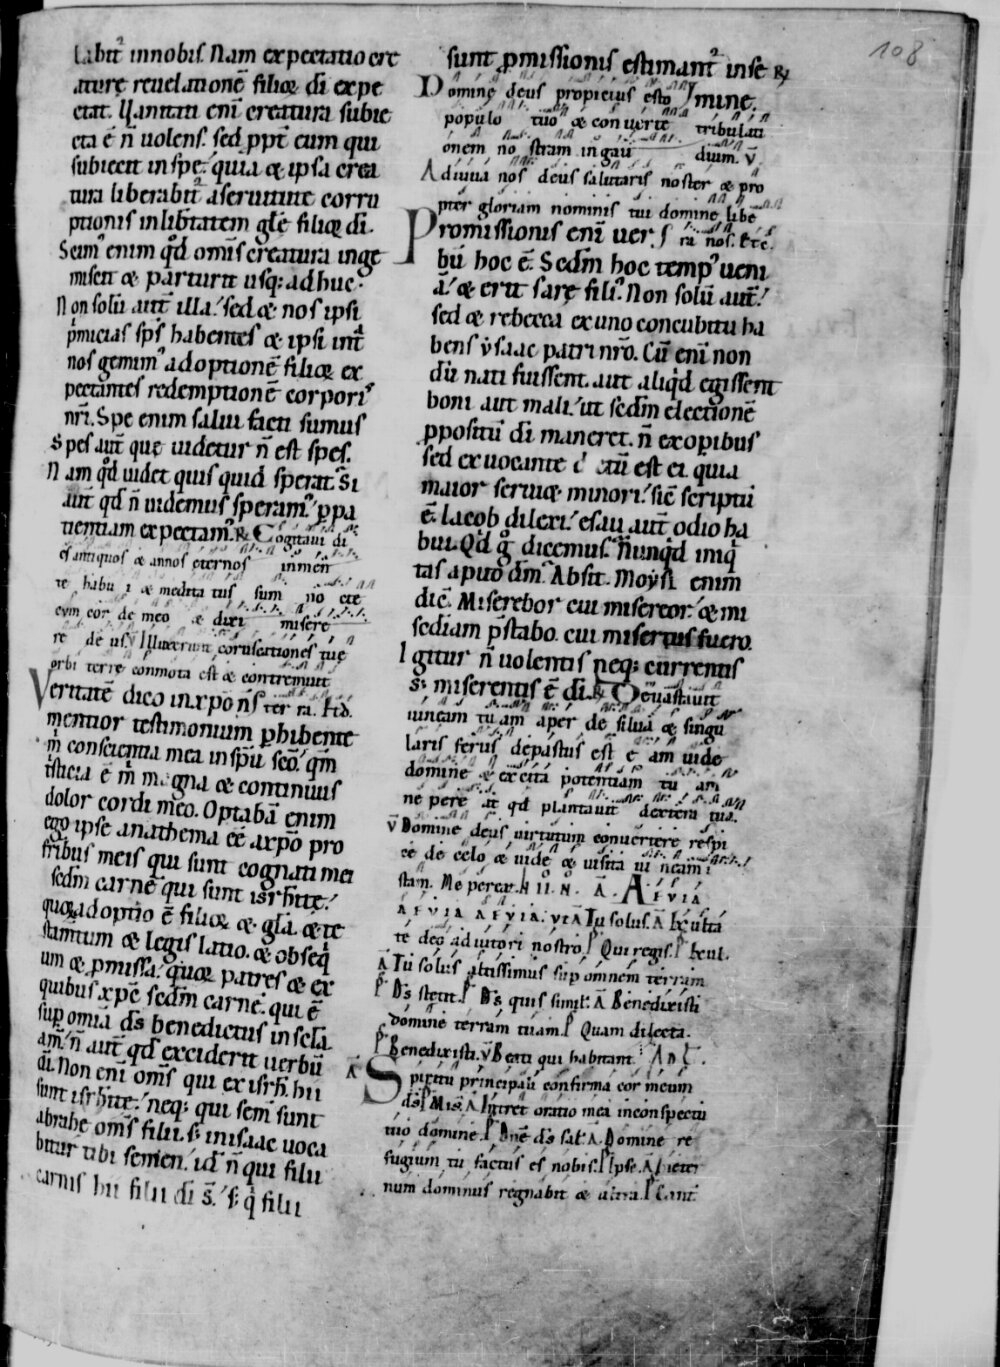 108
labit᷑ in nobis. Nam expectatio cre
aturę reuelationē filioꝝ di expe
ctat. Uanitati eni creatura subie
cta ē n̄ uolens. sed ppt̄ eum qui
subiecit in spe. quia & ipsa crea
tura liberabit᷑ a seruitute corru
ptionis in lib̄tatem glę filioꝝ di.
Scim᷒ enim qđ omīs creatura inge
miscit & parturit usq; adhuc.
Non solū aut̄ illa. sed & nos ipsi
p̄micias sp̄s habentes & ipsi int̄
nos gemim᷒ adoptionē filioꝝ ex
pectantes redemptionē corpori᷒
nr̄i. Spe enim salui facti sumus
Spes aut̄ quę uidetur n̄ est spes.
Nam qđ uidet quis quid sperat. Si
aut̄ qđ n̄ uidemus speram᷒. p pa
tientiam expectam᷒. ℟ Cogitaui di
es antiquos & annos eternos in men
te habu i & medita tus sum no cte
cum cor de meo & dixi misere
re de us. ℣ Illuxerunt coruscationes tuę
orbi terrę conmota est & contremuit
Veritatē dico in xp̄o n̄ ter ra.
mentior testimonium phibente
m̄ conscientia mea in sp̄u sc̄o. qm̄
tristicia ē m̄ magna & continuus
dolor cordi meo. Optabā enim
ego ipse anathema eē a xp̄o pro
frib̄us meis qui sunt cognati mei
sedm̄ carnē qui sunt isrhite.
quoꝝ adoptio ē filioꝝ & gla. & te
stam̄tum & legis latio. & obseq̄
um & pmissa. quoꝝ patres & ex
quibus xp̄c sedm̄ carnē. qui ē
sup omīa ds̄ benedictus in scla
am̄. n̄ aut̄ qđ exciderit uerbū
di. Non eni omīs qui ex isrhl hii
sunt isrhite. neq; qui sem̄ sunt
abrahe omīs filii. s; in isaac uoca
bitur tibi semen. id n̄ qui filii
carnis hii filii di s̄. s; q̄ filii
sunt pmissionis estimant᷑ in se ℟
Domine deus propicius esto mine.
populo tuo & conuerte tribulati
onem no stram in gau dium. ℣
Adiuua nos deus salutaris noster & pro
pter gloriam nominis tui domine libe
Promissionis eni uer. ra nos.
bū hoc ē. Sedm̄ hoc temp᷒ ueni
ā. & erit sarę fili᷒. Non solū aut̄.
sed & rebecca ex uno concubitu ha
bens ysaac patri nr̄o. Cū eni non
dū nati fuissent. aut aliqd egissent
boni aut mali. ut sedm̄ electionē
ppositū di maneret. n̄ ex opibus
sed ex uocante dictū est ei quia
maior seruię minori. sic̄ scriptū
ē. Iacob dilexi. esau aut̄ odio ha
bui. Qđ g dicemus. nunqd iniq
tas apud dm̄. Absit. Moysi enim
dic̄. Miserebor cui misereor. & mi
sediam p̄stabo. cui misertus fuero.
Igitur n̄ uolentis neq; currentis
s; miserentis ē di. ℟ Deuastauit
uineam tuam aper de silua & singu
laris ferus depastus est e am uide
domine & excita potentiam tu am
ne pere at qđ plantauit dextera tua.
℣ Domine deus uirtutum conuertere respi
ce de celo & uide & uisita ui neam i
stam. Ne pereat. A AEVIA
AEVIA AEVIA. Tu solus. A Exulta
te deo adiutori nostro. P Qui regis. P Exul.
A Tu solus altissimus sup omnem terram
P Ds stetit. P Ds quis simil. A Benedixisti
domine terram tuam. P Quam dilecta.
P Benedixisti. ℣ Beati qui habitant.
A Spiritu principali confirma cor meum
ds. P Mis. A Intret oratio mea in conspectu
tuo domine. P Dnē ds sal. A Domine re
fugium tu factus es nobis. P Ipse. A In eter
num dominus regnabit & ultra. P Cant